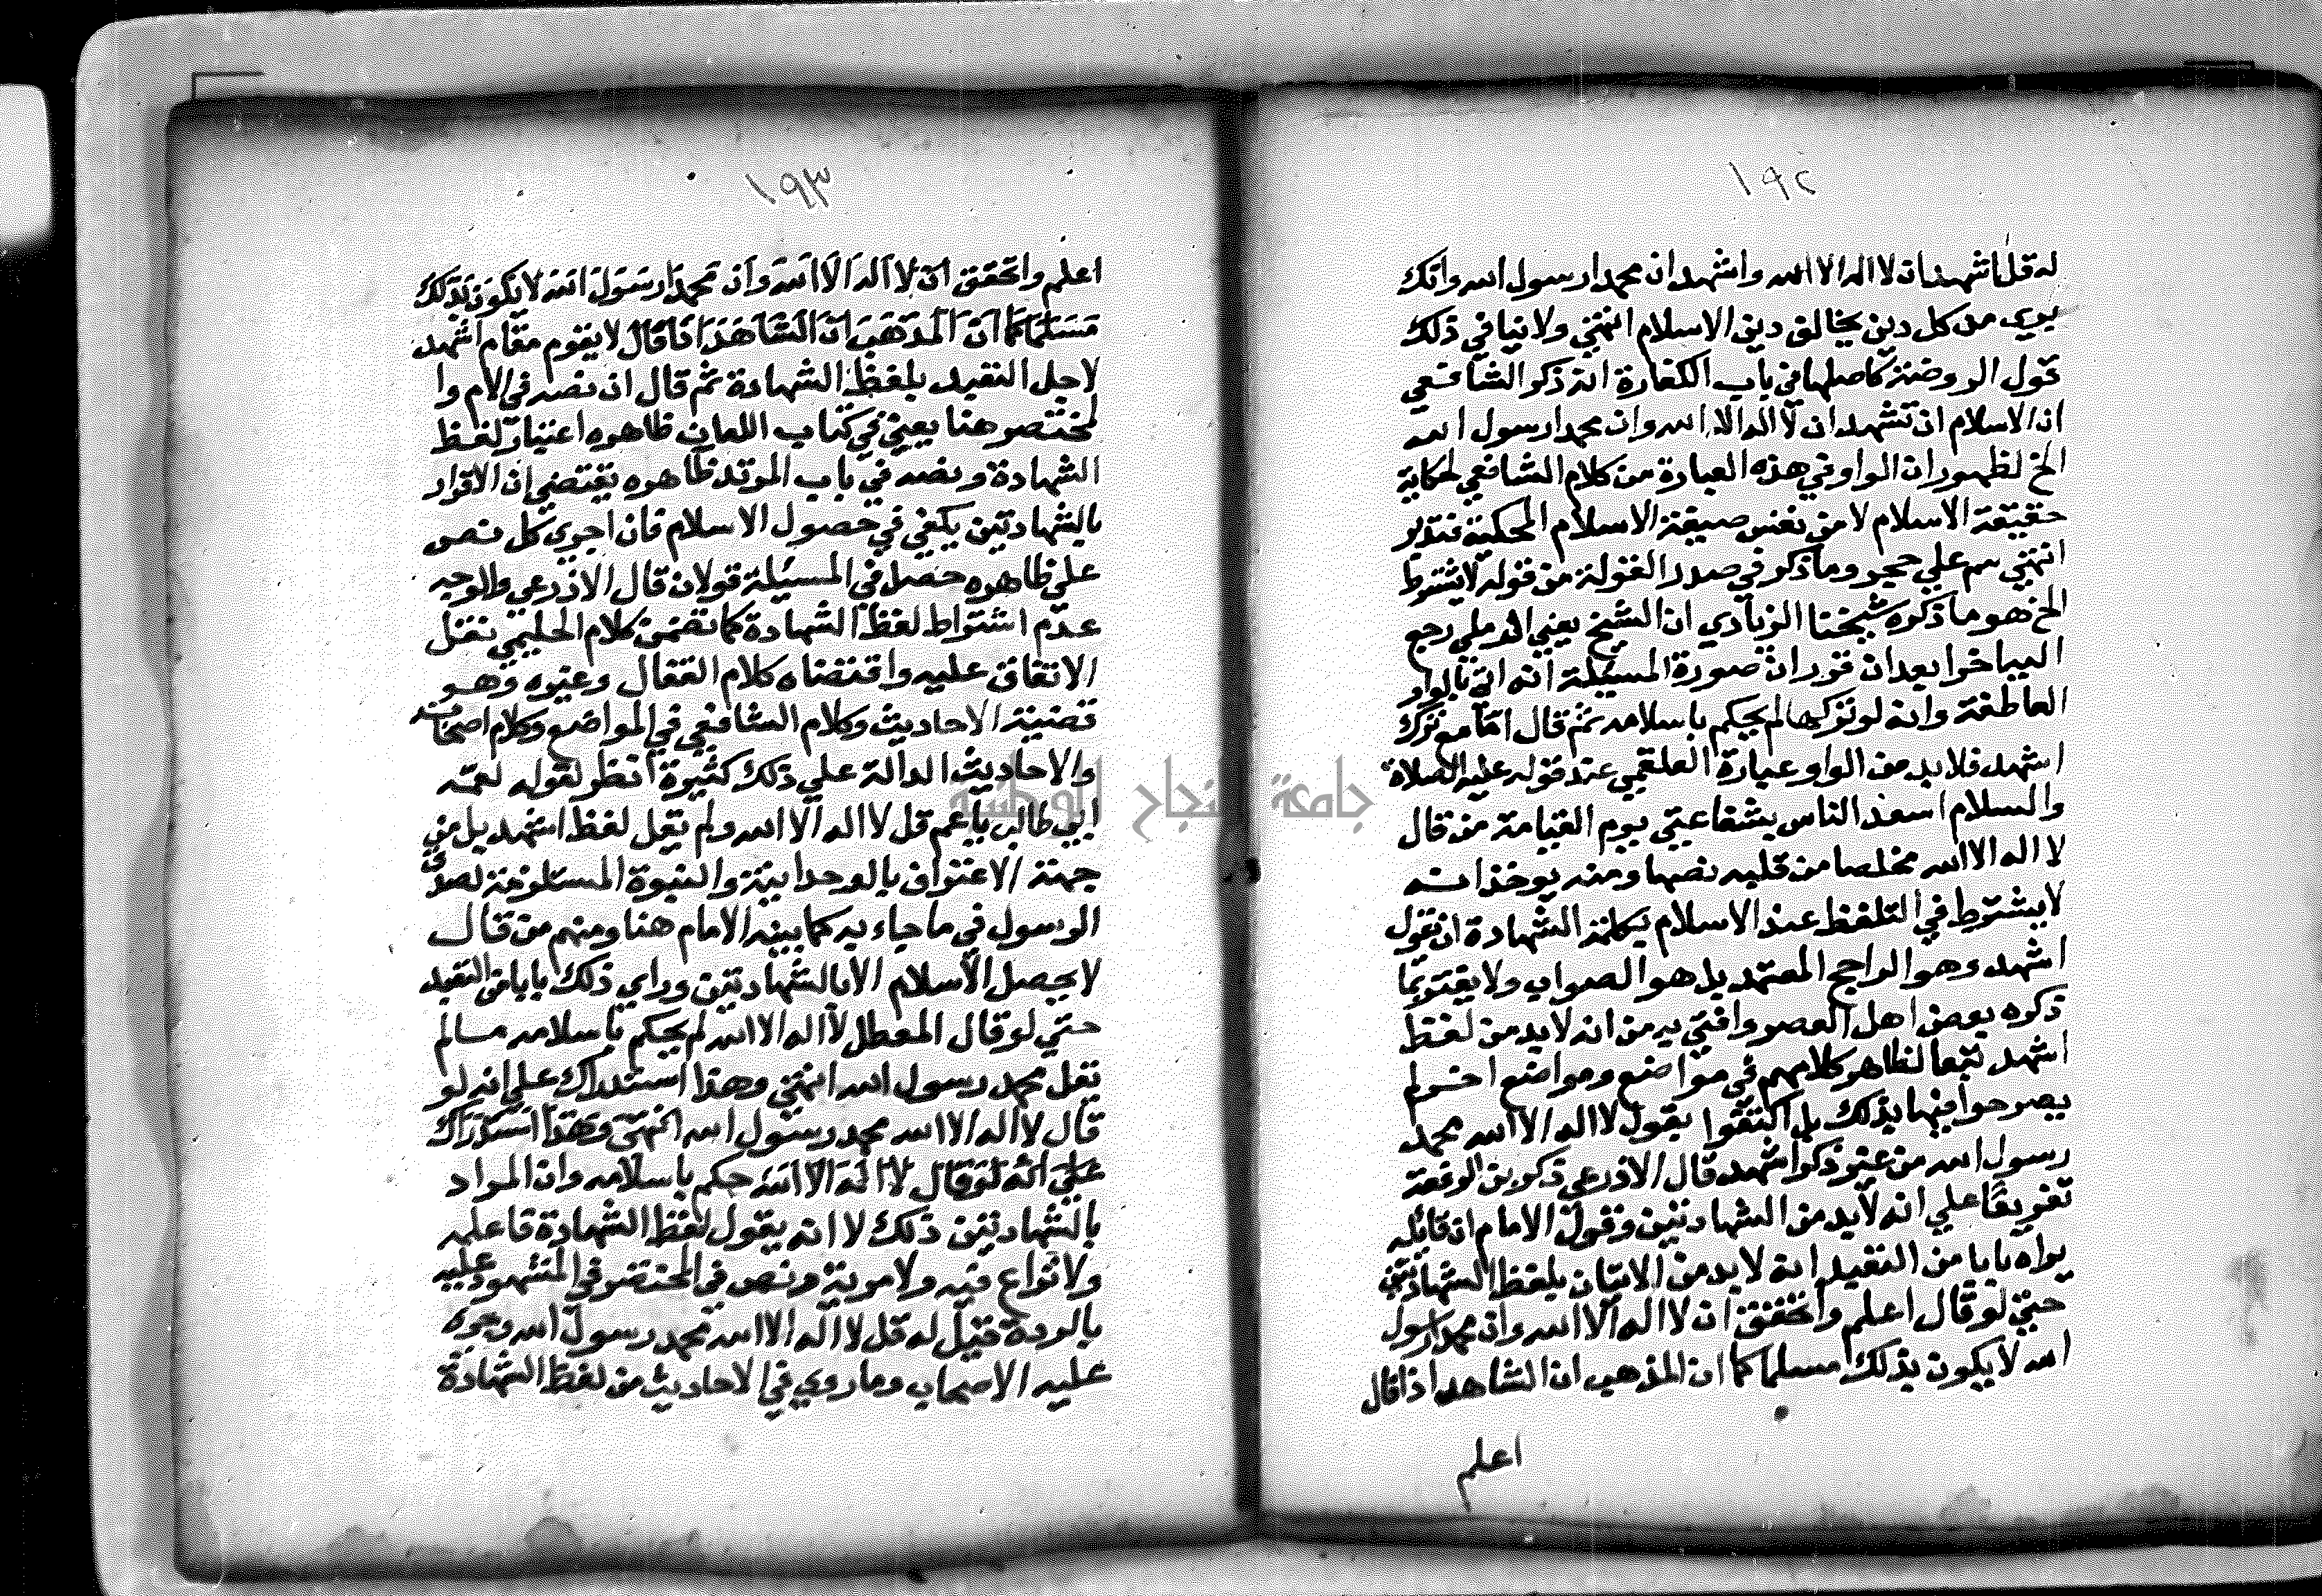 ١٩٢
له قل اشهد ان لا اله الا الله واشهد ان محمدا رسول الله وانك
بري من كل دين يخالف دين الاسلام انتهي ولا ينافي ذلك
قول الروضة كاصلها في باب الكفارة انه ذكر الشافعي
ان الاسلام ان تشهد ان لا اله الا الله وان محمدا رسول الله
الخ لظهور ان الواو في هذه العبارة من كلام الشافعي لحكاية
حقيقة الاسلام لا من نفس صيغة الاسلام المحكية فتدبر
انتهي سم علي حجر وما ذكر في صدر القولة من قوله لا يشترط
الخ هو ما ذكره شيخنا الزيادي ان الشيخ يعني الرملي رجع
اليه اخرا بعد ان قرر ان صورة المسيلة انه اتي بالواو
العاطفة وانه لو تركها لم يحكم باسلامه ثم قال اما مع ترك
اشهد فلا بد من الواو وعبارة العلقمي عند قوله عليه الصلاة
والسلام اسعد الناس بشفاعتي يوم القيامة من قال
لا اله الا الله مخلصا من قلبه نصها ومنه يوخذ انه
لا يشترط في التلفظ عند الاسلام بكلمة الشهادة ان تقول
اشهد وهو الراجح المعتمد بل هو الصواب ولا يغتر بما
ذكره بعض اهل العصر وافتي به من انه لا بد من لفظ
اشهد تبعا لظاهر كلامهم في مواضع ومواضع اخر لم
يصرحوا فيها بذلك بل اكتفوا بقول لا اله الا الله محمد
رسول الله من غير ذكر اشهد قال الاذرعي ذكر بن الرفعة
تفريقا علي انه لا بد من الشهادتين وقول الامام ان قائله
يراه بابا من التعبد انه لا بد من الاتيان بلفظ الشهادتين
حتي لو قال اعلم واتحقق ان لا اله الا الله وان محمدا رسول
الله لا يكون بذلك مسلما كما ان المذهب ان الشاهد اذا قال
اعلم
١٩٣
اعلم واتحقق ان لا اله الا الله وان محمدا رسول الله لا يكون بذلك
مسلما كما ان المذهب ان الشاهد اذا قال لا يقوم مقام اشهد
لاجل التعبد بلفظ الشهادة ثم قال ان نصه في الام وا
لمختصر هنا يعني في كتاب اللعان ظاهره اعتبار لفظ
الشهادة ونصه في باب المرتد ظاهره يقتضي ان الاقرار
بالشهادتين يكفي في حصول الاسلام فان اجري كل نص
علي ظاهره حصل في المسيلة قولان قال الاذرعي والوجه
عدم اشتراط لفظ الشهادة كما تضمن كلام الحليمي نقل
الاتفاق عليه واقتضاه كلام القفال وغيره وهو
قضية الاحاديث وكلام الشافعي في المواضع وكلام اصحابه
والاحاديث الدالة علي ذلك كثيرة انظر لقوله لعمه
ابي طالب يا عم قل لا اله الا الله ولم يقل لفظ اشهد بل من
جهة الاعتراف بالوحدانية والنبوة المستلزمة لصدق
الرسول في ما جاء به كما بينه الامام هنا ومنهم من قال
لا يحصل الاسلام الا بالشهادتين وراي ذلك بابا من التعبد
حتي لو قال المعطل لا اله الا الله لم يحكم باسلامه ما لم
يقل محمد رسول الله انتهي وهذا استدراك علي انه لو
قال لا اله الا الله محمد رسول الله انتهي وهذا استدراك
علي انه لو قال لا اله الا الله حكم باسلامه وان المراد
بالشهادتين ذلك لا انه يقول لفظ الشهادة فاعلمه
ولا نزاع فيه ولا مرية ونص في المختصر في المشهود عليه
بالردة قيل له قل لا اله الا الله محمد رسول الله وجري
عليه الاصحاب وما روي في الاحاديث من لفظ الشهادة
جامعة النجاح الوطنية